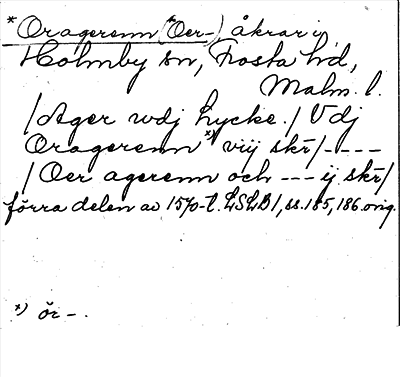 *Oragerenn (Oer-), åkrar i
Holmby sn, Frosta hd,
Malm. l.
/Ager udj Lycke./ Vdj
Oragerenn *) viij skr̄/----
/Oer agerenn och --- ij skr̄/
förra delen av 1570-t. LSLB1, ss. 185, 186 orig.
*) ör-.